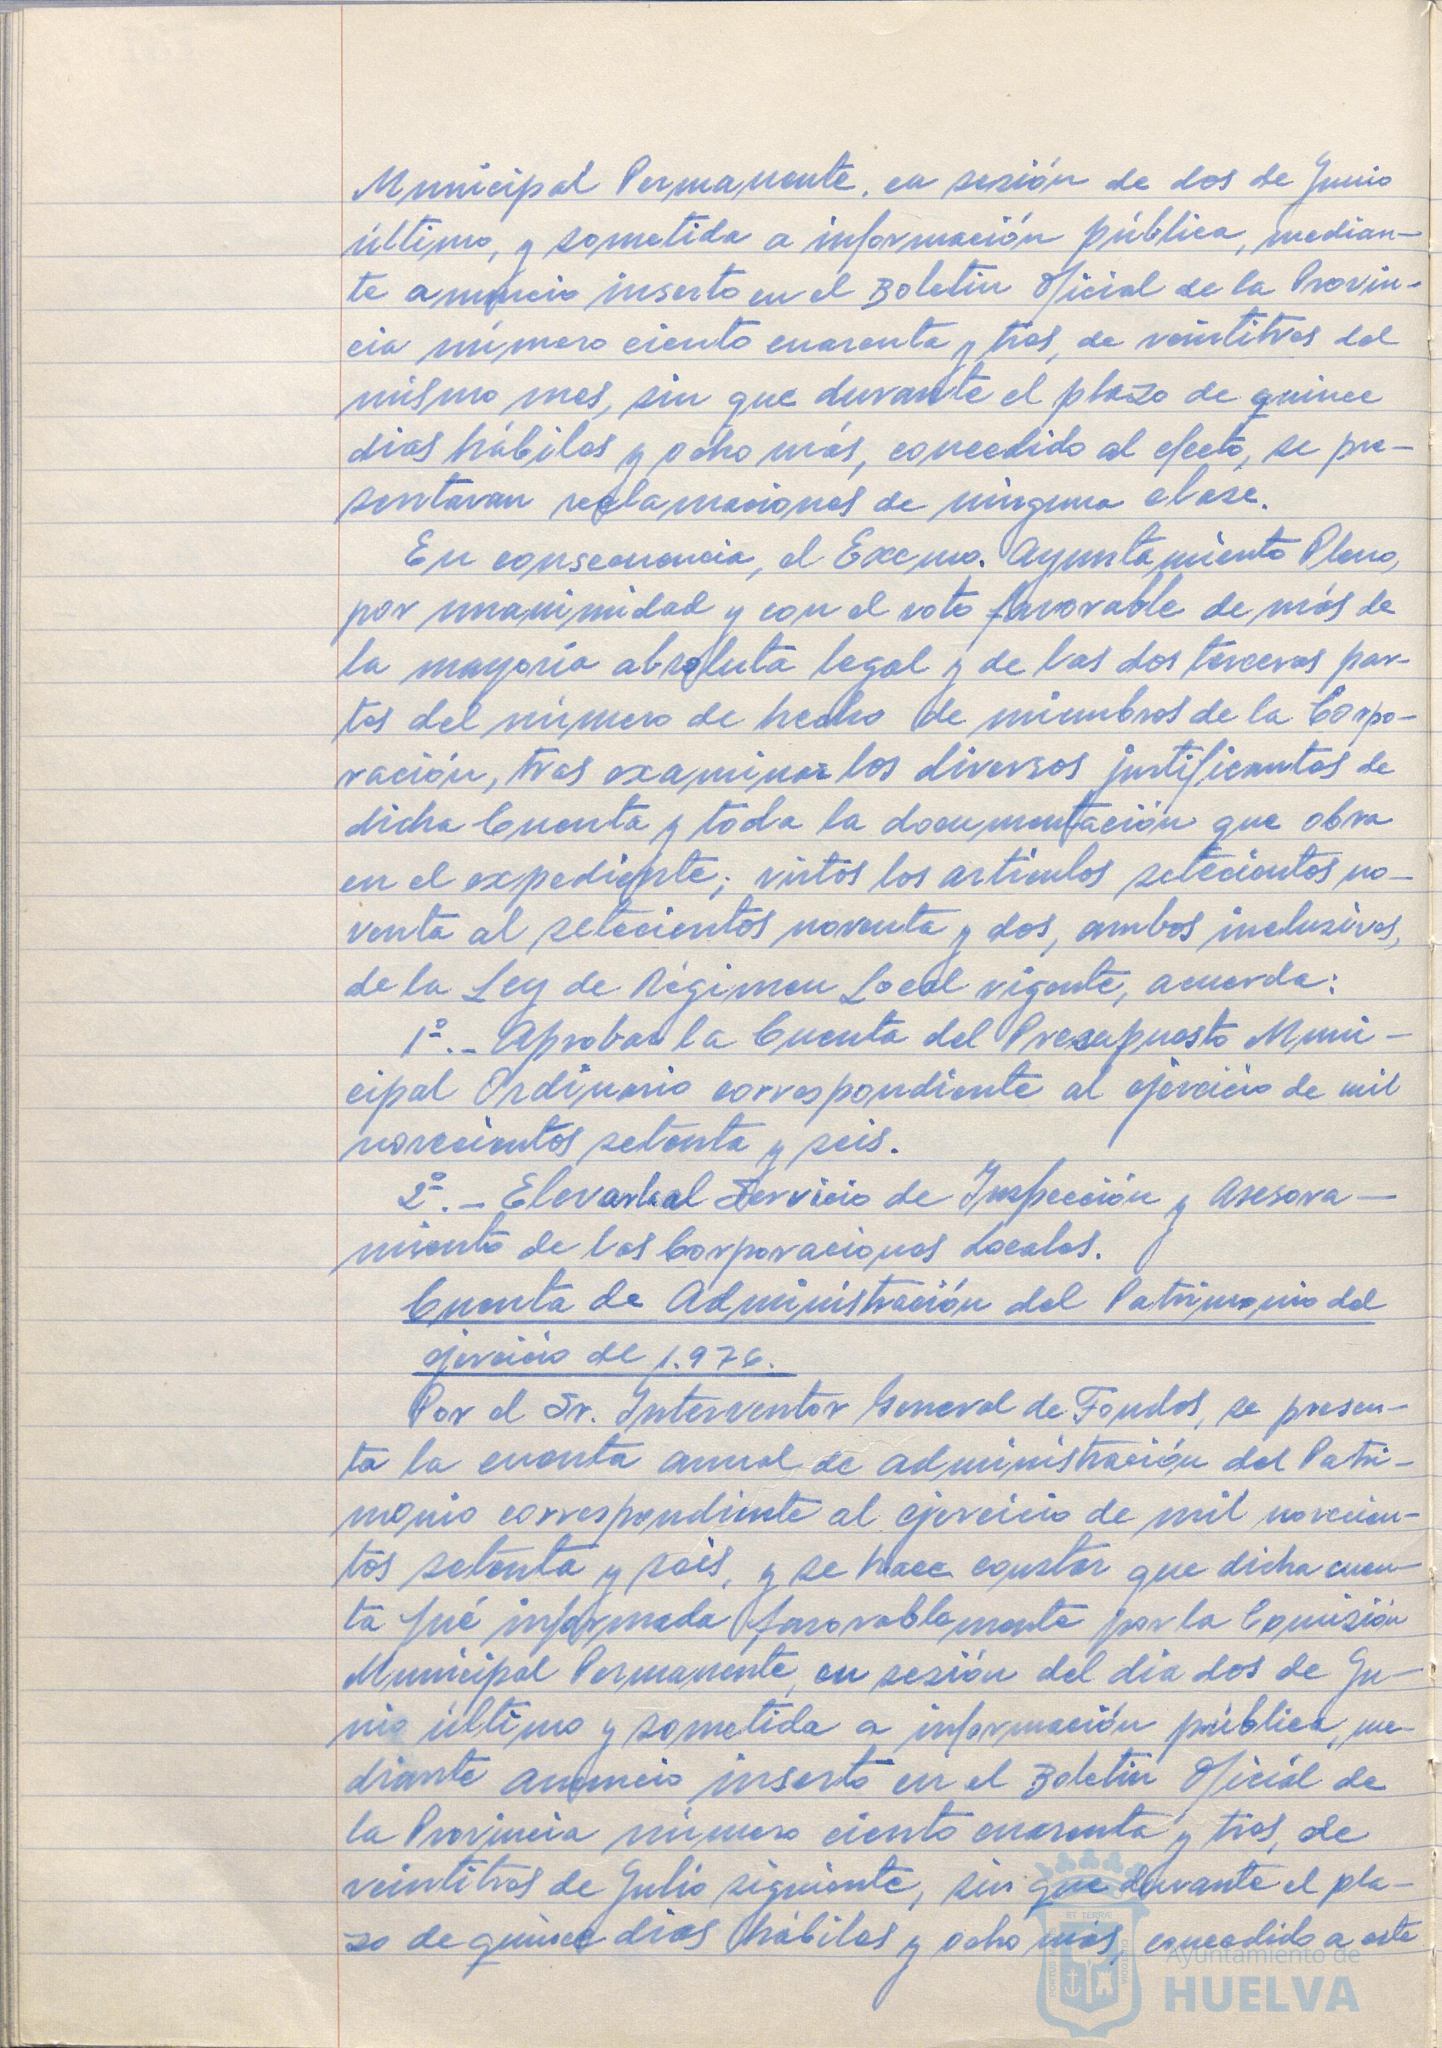 Municipal Permanente, en sesión de dos de Junio
último, y sometida a información pública, median-
te anuncio inserto en el Boletin Oficial de la Provin-
cia número ciento cuarenta y tres, de veintitres del
mismo mes, sin que durante el plazo de quince
dias hábiles y ocho más, concedido al efecto, se pre-
sentaran reclamaciones de ninguna clase.
En consecuencia, el Excmo. Ayuntamiento Pleno,
por unanimidad y con el voto favorable de más de
la mayoría absoluta legal y de las dos terceras par-
tes del número de hecho de miembros de la Corpo-
ración, tras examinar los diversos justificantes de
dicha Cuenta y toda la documentación que obra
en el expediente; vistos los artículos setecientos no-
venta al setecientos noventa y dos, ambos inclusives,
de la Ley de Régimen Local vigente, acuerda:
1º.- Aprobar la Cuenta del Presupuesto Muni-
cipal Ordinario correspondiente al ejercicio de mil
novecientos setenta y seis.
2º.- Elevarla al Servicio de Inspección y Asesora-
miento de las Corporaciones Locales.
Cuenta de Administración del Patrimonio del
ejercicio de 1.976.
Por el Sr. Interventor General de Fondos, se presen-
ta la cuenta anual de administración del Patri-
monio correspondiente al ejercicio de mil novecien-
tos setenta y seis, y se hace constar que dicha cuen-
ta fué informada favorablemente por la Comisión
Municipal Permanente, en sesión del dia dos de Ju-
nio último y sometida a información pública, me-
diante anuncio inserto en el Boletin Oficial de
la Provincia número ciento cuarenta y tres, de
veintitres de Julio siguiente, sin que durante el pla-
zo de quince dias hábiles y ocho más, concedido a este
Ayuntamiento de
HUELVA